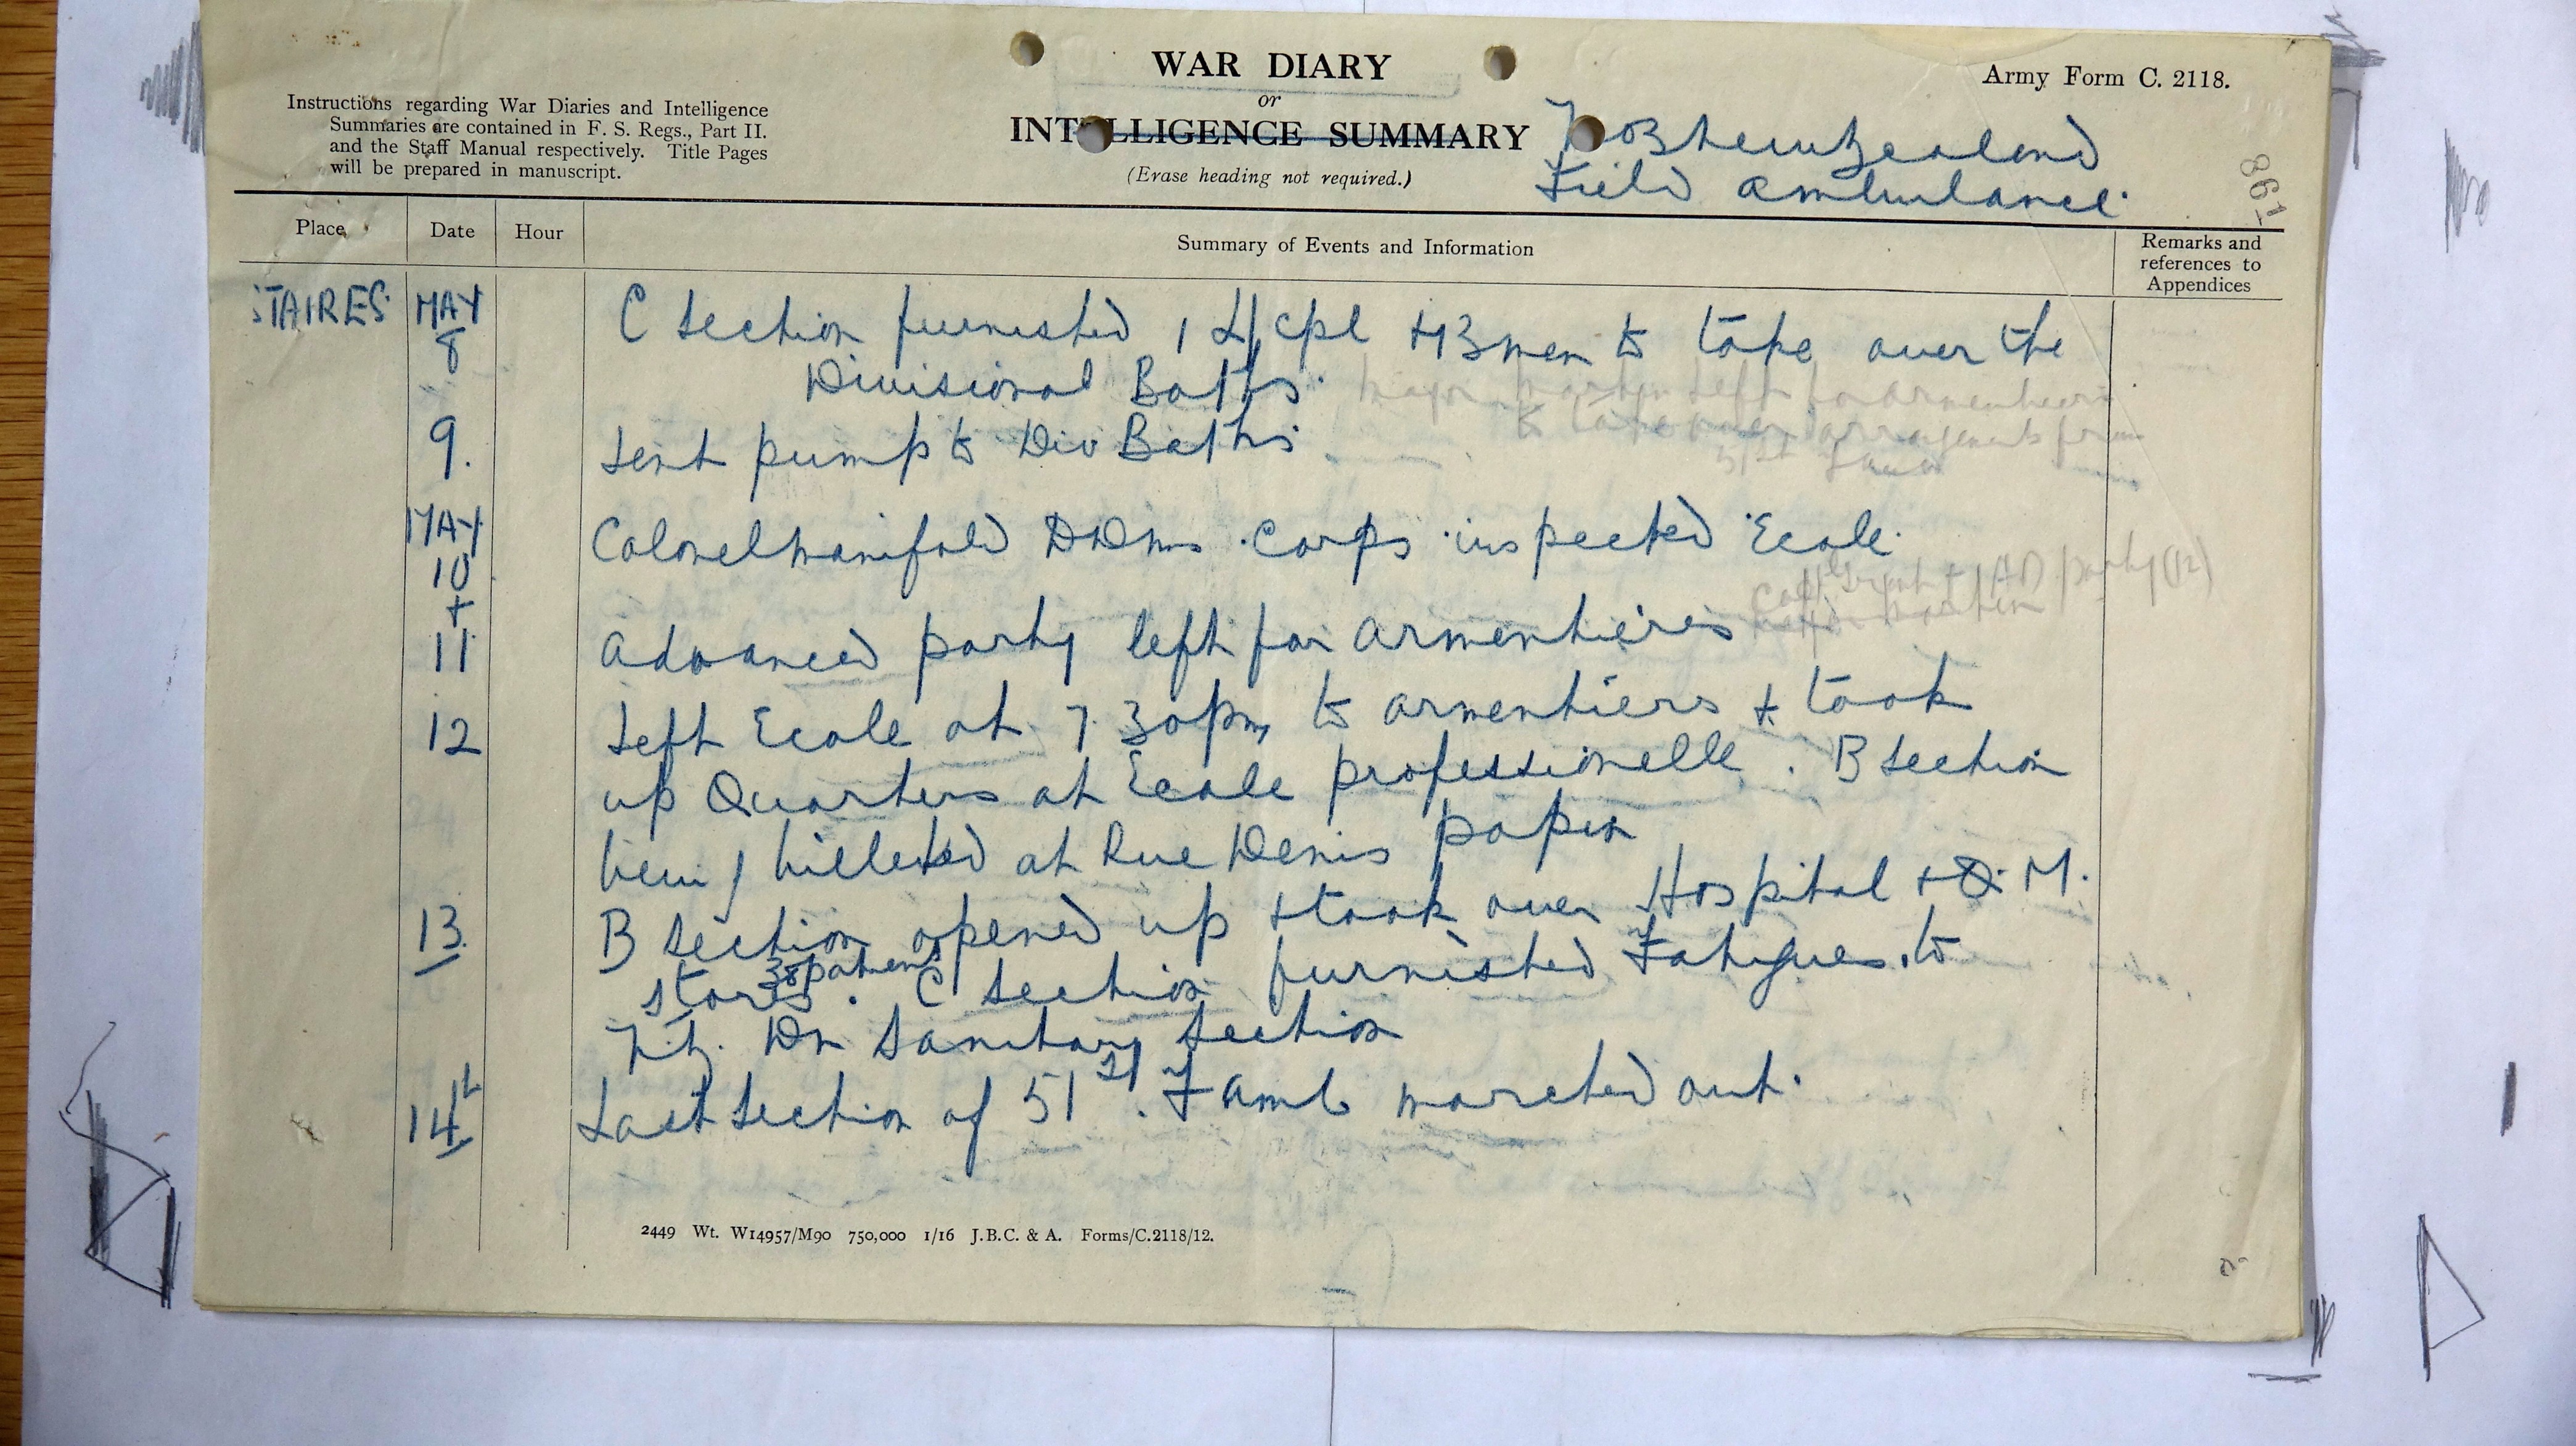 WAR DIARY
or
INTELLIGENCE SUMMARY
(Erase heading not required.)
Army Form C. 2118.
Instructions regarding War Diaries and Intelligence
Summaries are contained in F. S. Regs., Part II.
and the Staff Manual respectively. Title Pages
will be prepared in manuscript.
No 3 New Zealand
Field Ambulance.
861
Place
Date
Hour
Summary of Events and Information
Remarks and
references to
Appendices
STAIRES MAY 8 C Section furnished 1 L/cpl + 13 men to take over the
Divisional Baths. Major Martin left for Armentieres
to take over arrangements from
51st Famb
9. Sent pump to Div Baths
MAY 10 Colonel Manifold DDMS. Corps inspected Ecole.
Capt + AD party (12)
Major Martin
+ 11 Advanced party left for Armentieres
12 Left Ecole at 7.30pm to Armentiers + took
up Quarters at Ecole professionelle. B Section
being billeted at Rue Denis papin
13. B Section opened up + took over Hospital + Q. M.
38 patients
stores. C Section furnished Fatigues to
N.Z. Dn Sanitary Section
14th Last Section of 51st. F Amb marched out.
2449 Wt. W14957/M90 750,000 1/16 J.B.C. & A. Forms/C.2118/12.